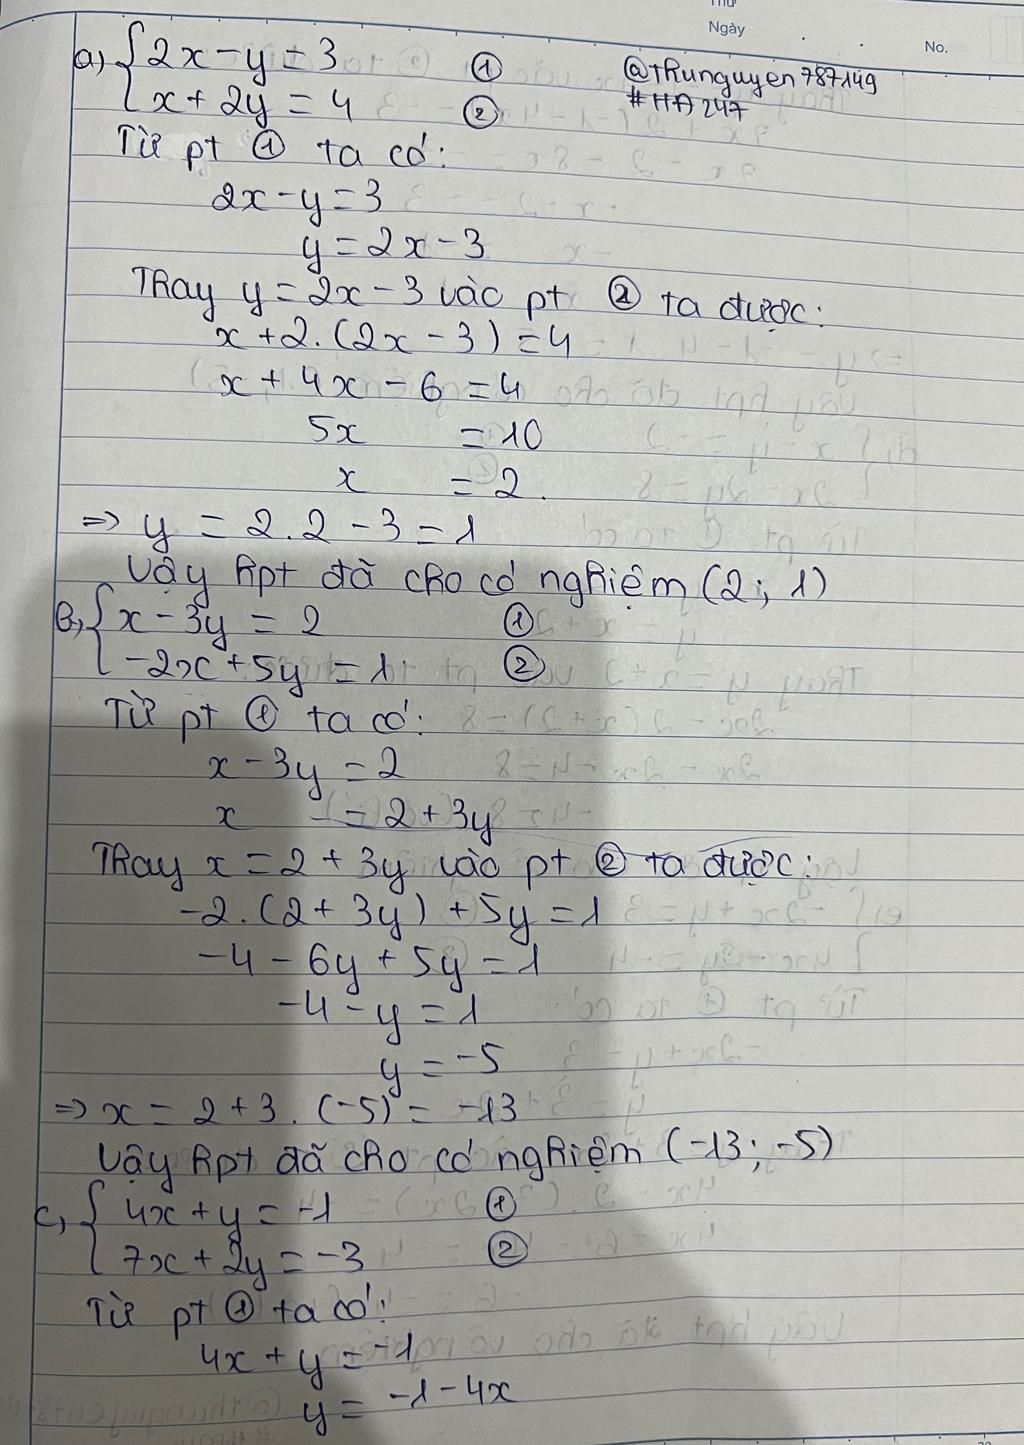 Thứ
Ngày
No.
a, { 2x - y = 3 ①
x + 2y = 4 ②
@thunguyen787149
#HA247
Từ pt ① ta có:
2x - y = 3
y = 2x - 3
Thay y = 2x - 3 vào pt ② ta được:
x + 2.(2x - 3) = 4
x + 4x - 6 = 4
5x = 10
x = 2.
=> y = 2.2 - 3 = 1
Vậy hpt đã cho có nghiệm (2; 1)
b, { x - 3y = 2 ①
-2x + 5y = 1 ②
Từ pt ① ta có:
x - 3y = 2
x = 2 + 3y
Thay x = 2 + 3y vào pt ② ta được:
-2.(2 + 3y) + 5y = 1
-4 - 6y + 5y = 1
-4 - y = 1
y = -5
=> x = 2 + 3.(-5) = -13
Vậy hpt đã cho có nghiệm (-13; -5)
c, { 4x + y = -1 ①
7x + 2y = -3 ②
Từ pt ① ta có:
4x + y = -1
y = -1 - 4x